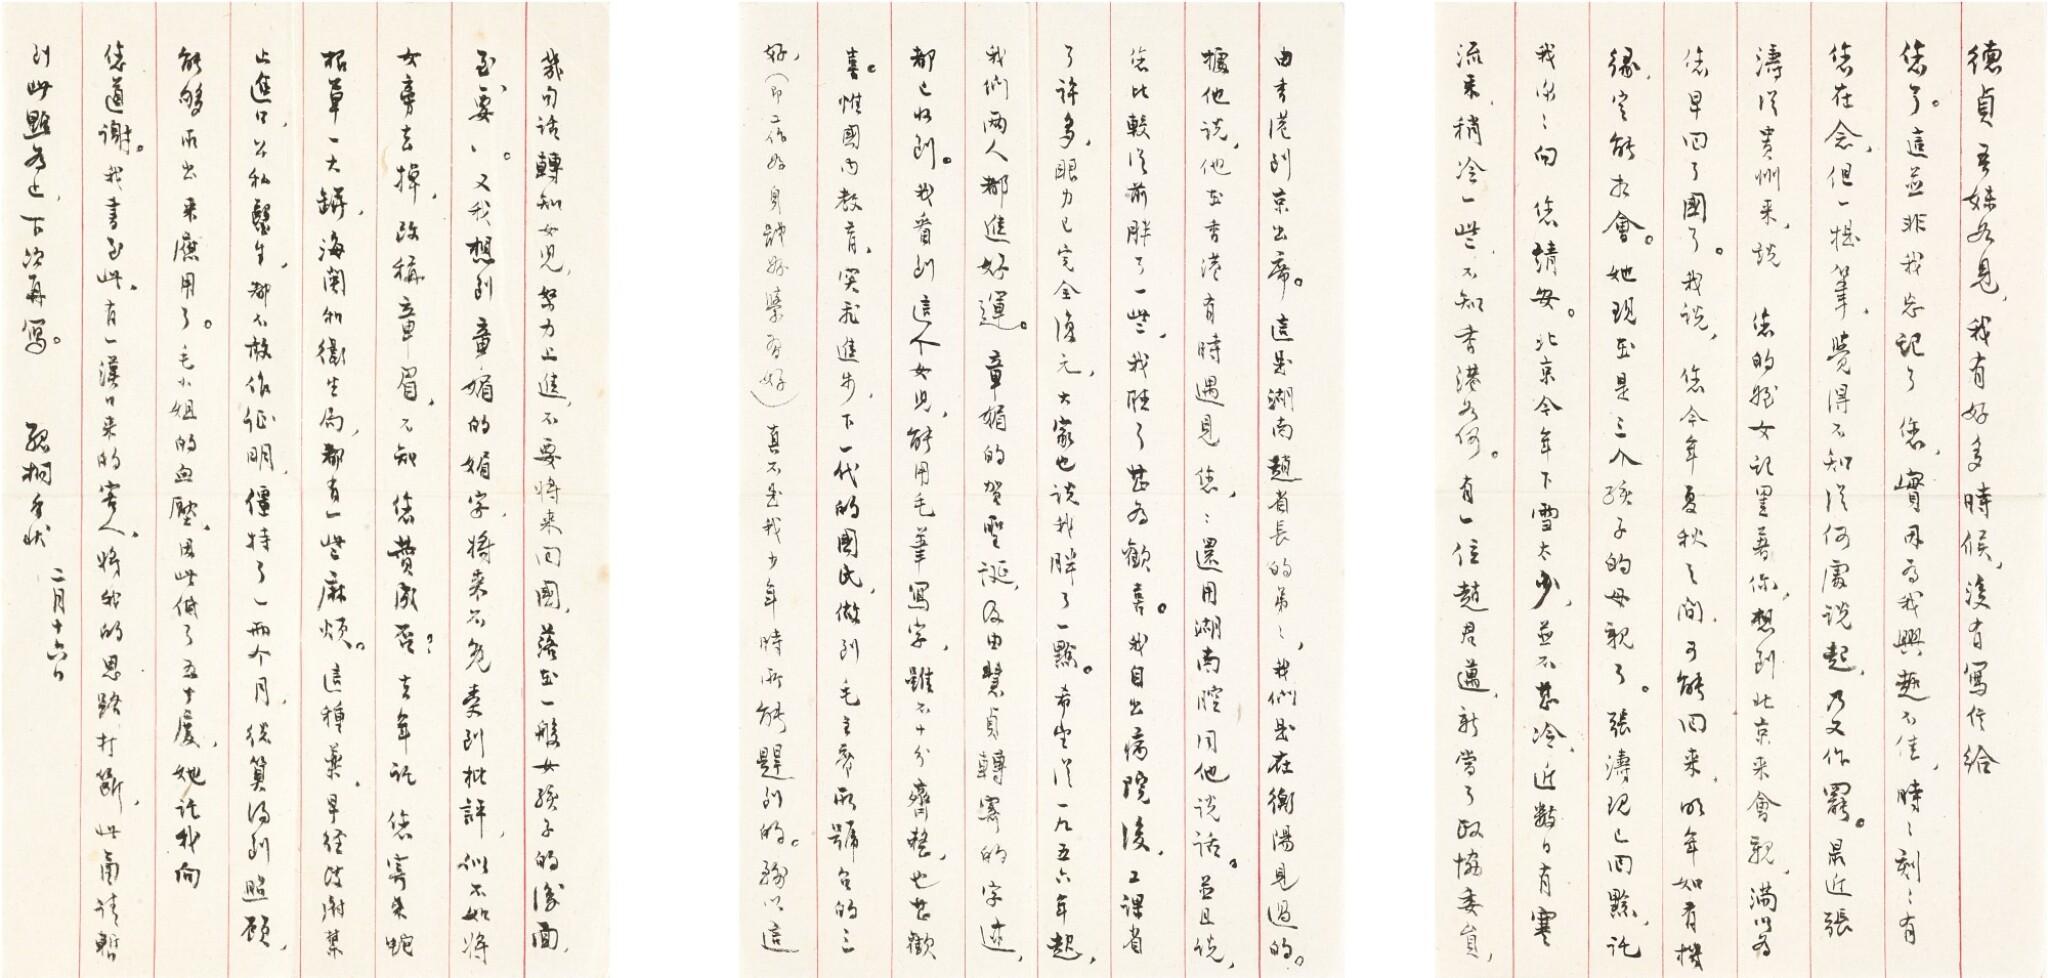 德貞吾妹如見，我有好多時候，沒有寫信給
您了。這並非我忘記了您，實因為我興趣不佳，時時刻刻有
您在念，但一提筆，覺得不知從何處說起，乃又作罷。最近張
濤從貴州來，說 您的姪女記罣著你，想到北京來會親，滿以為
您早回了國了。我說，您今年夏秋之間，可能回來，明年如有機
緣，定能相會。她現在是三個孩子的母親了。張濤現已回黔，託
我深深向 您請安。北京今年下雪太少，並不甚冷，近數日有寒
流來，稍冷一些，不知香港如何。有一位趙君邁，新當了政協委員，
由香港到京出席。這是湖南趙省長的弟弟，我們是在衡陽見過的。
據他說，他在香港有時遇見您，您還用湖南腔同他說話。並且說，
您比較從前胖了一些，我聽了甚為歡喜。我自出病院後，工課省
了許多，眼力已完全復元，大家也說我胖了一點。希望從一九五六年起，
我們兩人都進好運。章媚的賀聖誕，及由慧貞轉寄的字迹，
都已收到。我看到這個女兒，能用毛筆寫字，雖不十分齊整，也甚歡
喜。惟國內教育，突飛進步，下一代的國民，做到毛主席所號召的三
好，（即工作好身體好學習好）真不是我少年時所能趕到的。務以這
幾句話轉知女兒，努力上進，不要將來回國，落在一般女孩子的後面，
至要、、。又我想到章媚的媚字，將來不免受到批評，似不如將
女旁去掉，改稱章眉，不知 您贊成否？去年託 您寄來蛇
根草一大罐，海關和衛生局，都有一些麻煩。這種藥，早經政府禁
止進口，公私醫生，都不敢作證明，僵持了一兩個月，總算得到照顧，
能夠取出來應用了。毛小姐的血壓，因此低了五十度，她託我向
您道謝。我書至此，有一漢口來的客人，將我的思路打斷，此函請暫
到此點為止，下次再寫。 孤桐手狀 二月十六日